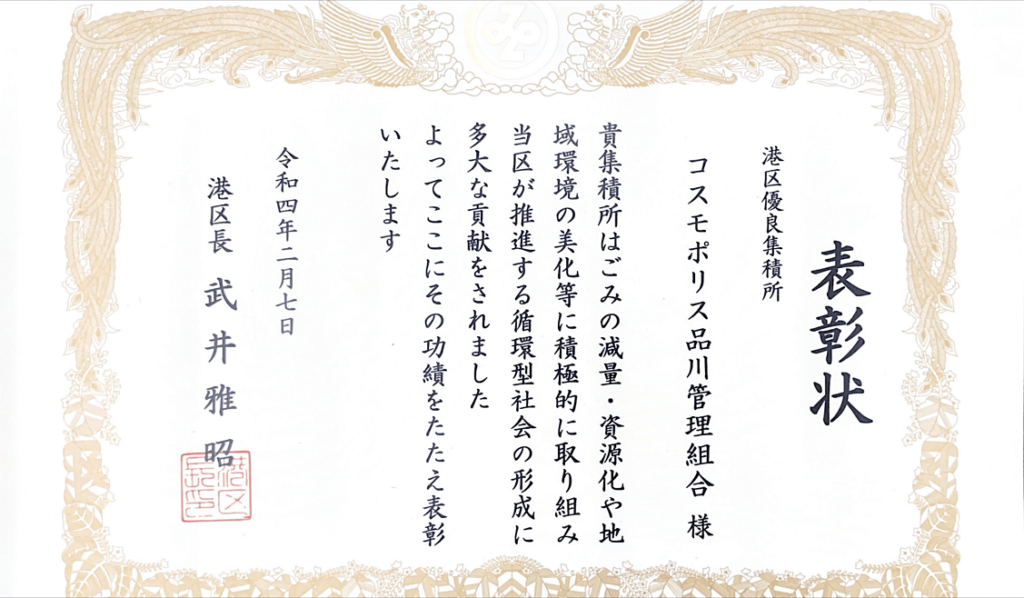 表彰状
港区優良集積所
コスモポリス品川管理組合 様
貴集積所はごみの減量・資源化や地
域環境の美化等に積極的に取り組み
当区が推進する循環型社会の形成に
多大な貢献をされました
よってここにその功績をたたえ表彰
いたします
令和四年二月七日
港区長 武井雅昭
港区長印